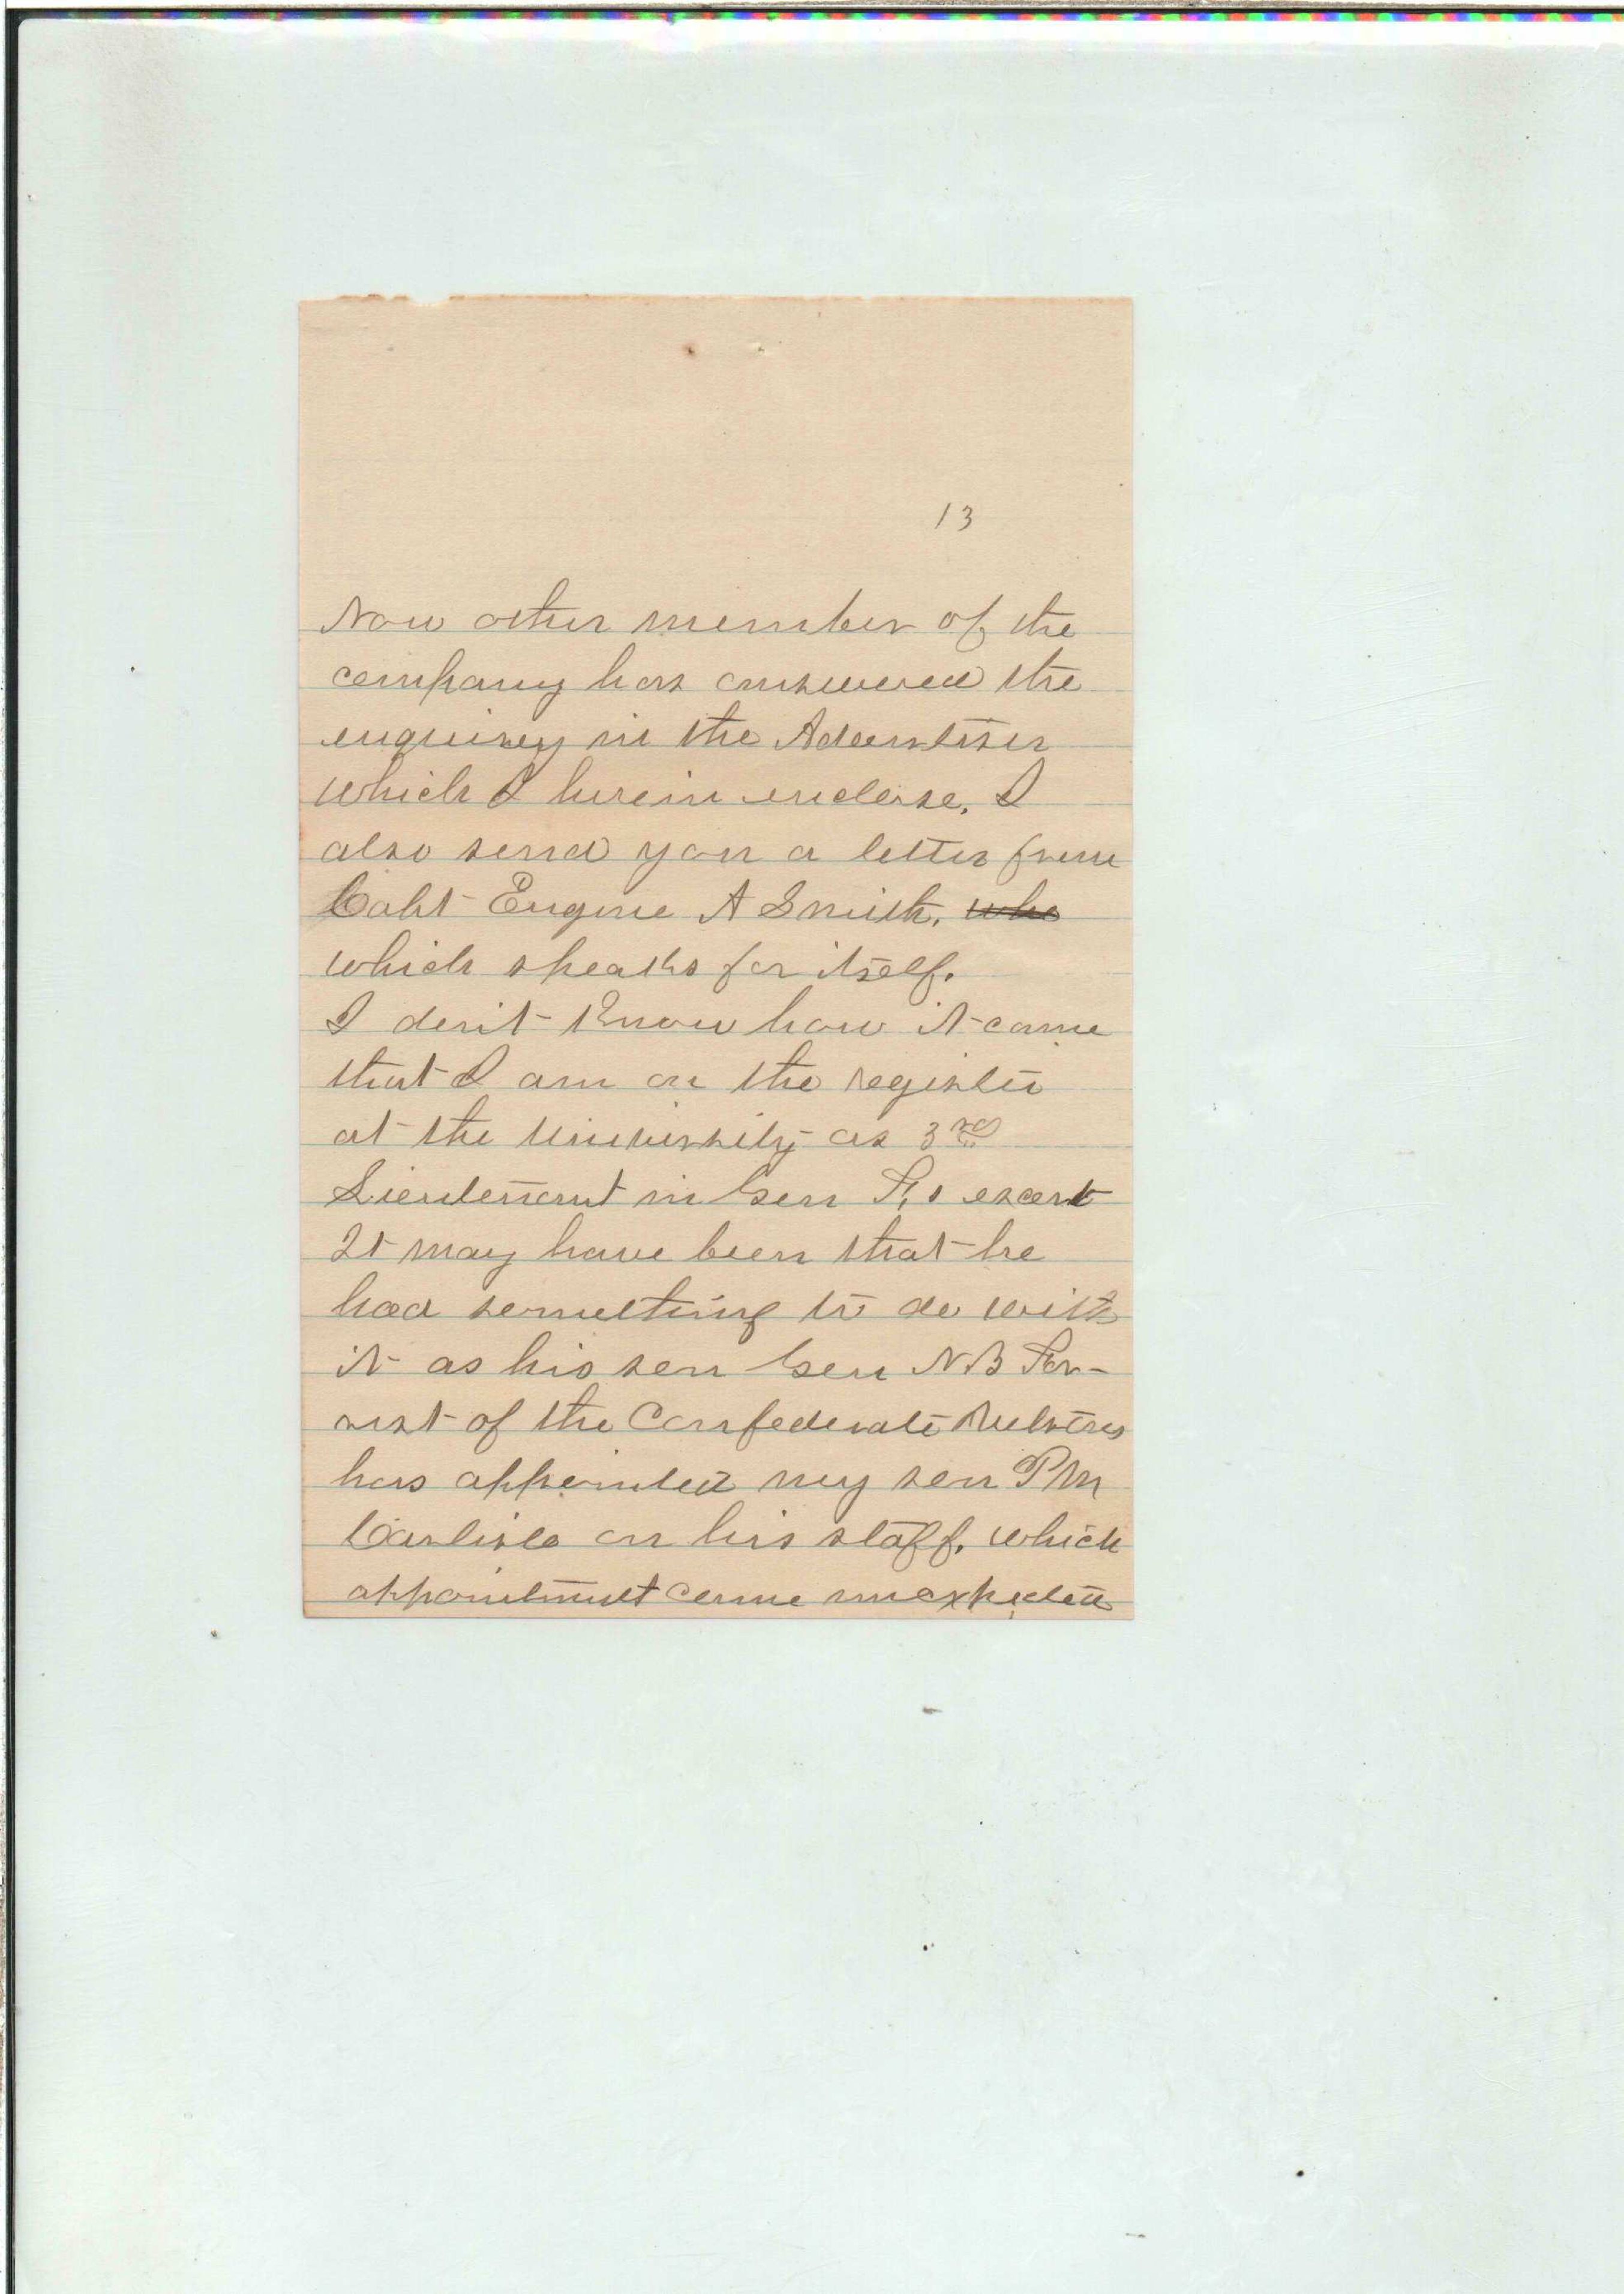 13
Now other member of the
company has answered the
enquirey in the Adevrtiser
which I herein enclose. I
also send you a letter from
Capt Eugine A Smith. who
which speaks for itself.
I don't Know how it came
that I am on the register
at the University as 3rd
Lieutenant in Gen F,s escort
It may have been that he
had something to do with
it as his son Gen N B For-
rest of the Confederate
has appointed my son P M
Carlisle on his staff, which
appointment come unexpected